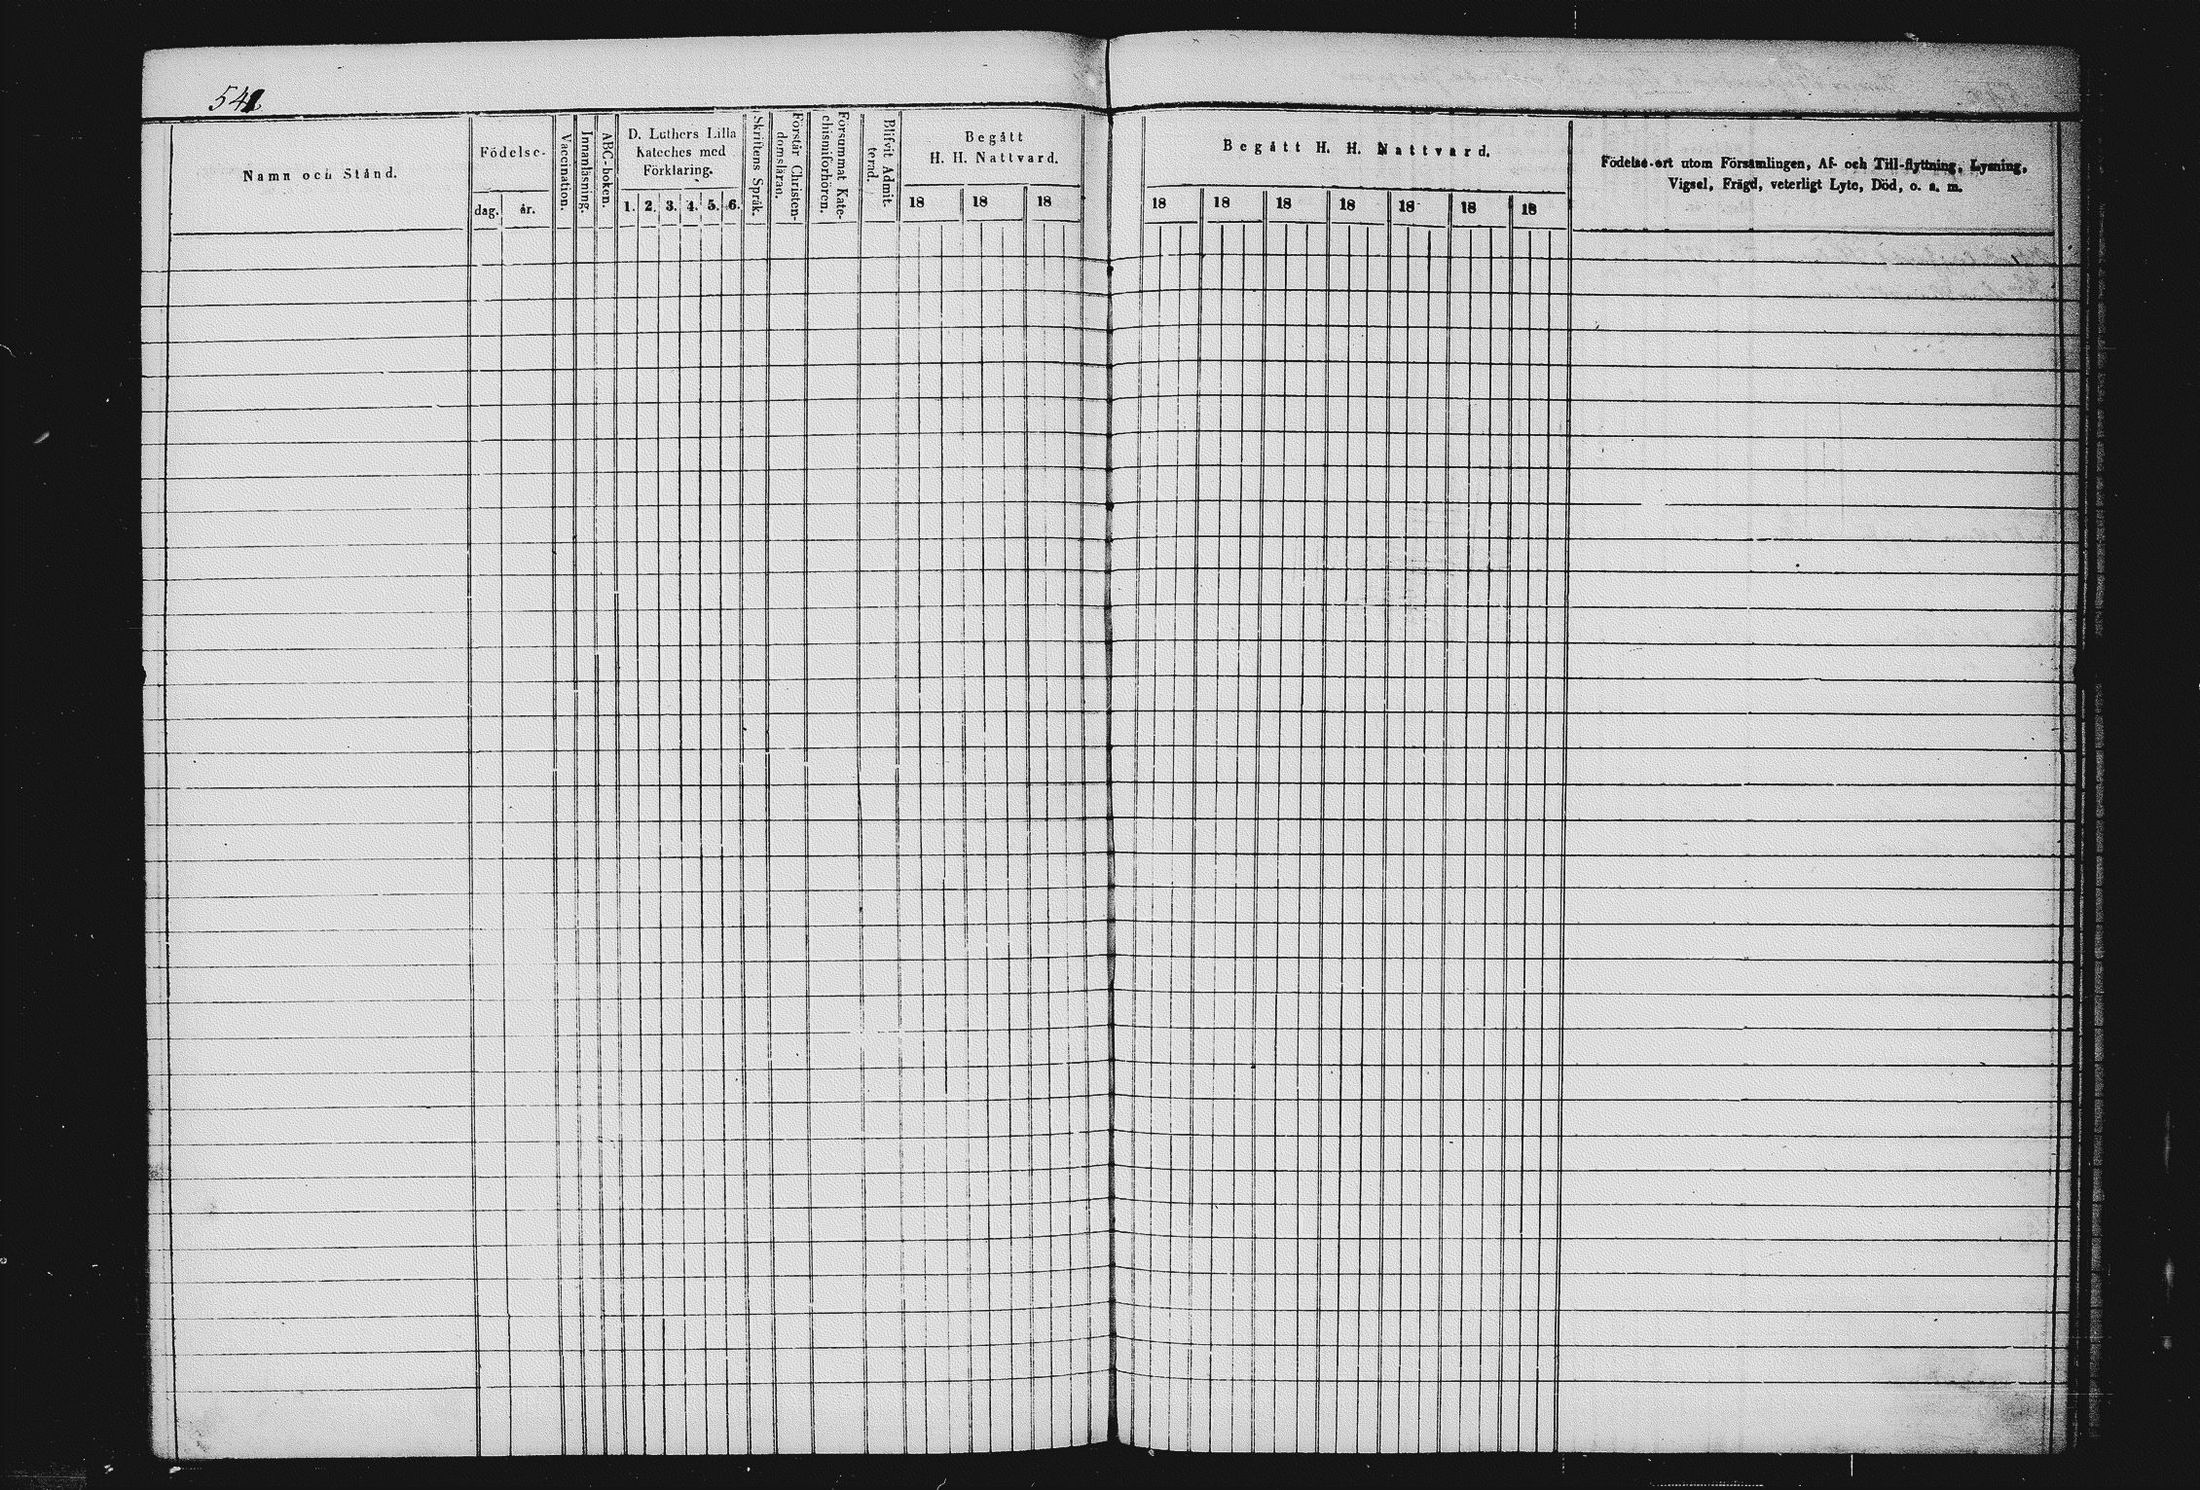 Namn och Stånd.
Födelse-
dag. år.
Vaccination.
Innanläsning.
ABC-boken.
D. Luthers Lilla
Kateches med
Förklaring.
1. 2. 3. 4. 5. 6.
Skriftens Språk.
Förstår Christen-
domsläran.
Försummat Kate-
chismiförhören.
Blifvit Admit-
terad.
Begått
H. H. Nattvard.
18 18 18
Begått H. H. Nattvard.
18 18 18 18 18 18 18
Födelse-ort utom Församlingen, Af- och Till-flyttning, Lysning,
Vigsel, Frägd, veterligt Lyte, Död, o. s. m.